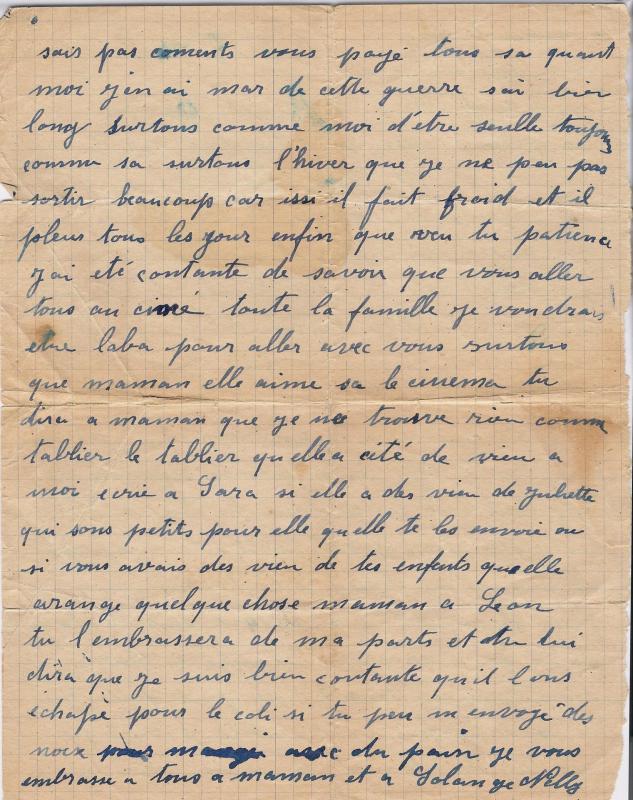 sais pas coments vous payé tous sa quant
moi j'en ai mar de cette guerre sai bien
long surtous comme moi d'etre seulle toujours
comme sa surtous l'hiver que je ne peu pas
sortir beaucoups car issi il fait froid et il
pleus tous les jour enfin que veu tu patience
j'ai eté contante de savoir que vous aller
tous au ciné toute la famille je voudrais
etre laba pour aller avec vous surtous
que maman elle aime sa le cinema tu
dira a maman que je ne trouve rien comme
tablier le tablier qu'elle a cité de vieu a
moi ecrie a Sara si elle a des vieu de Juliette
qui sons petits pour elle quelle te les envoie ou
si vous avais des vieu de tes enfants quelle
arange quelque chose maman a Leon
tu l'embrassera de ma parts et tu lui
dira que je suis bien contante qu'il l'ons
échapé pour le coli si tu peu m envoyé des
noix du pain je vous
embrasse a tous a maman et a Solange Nelly